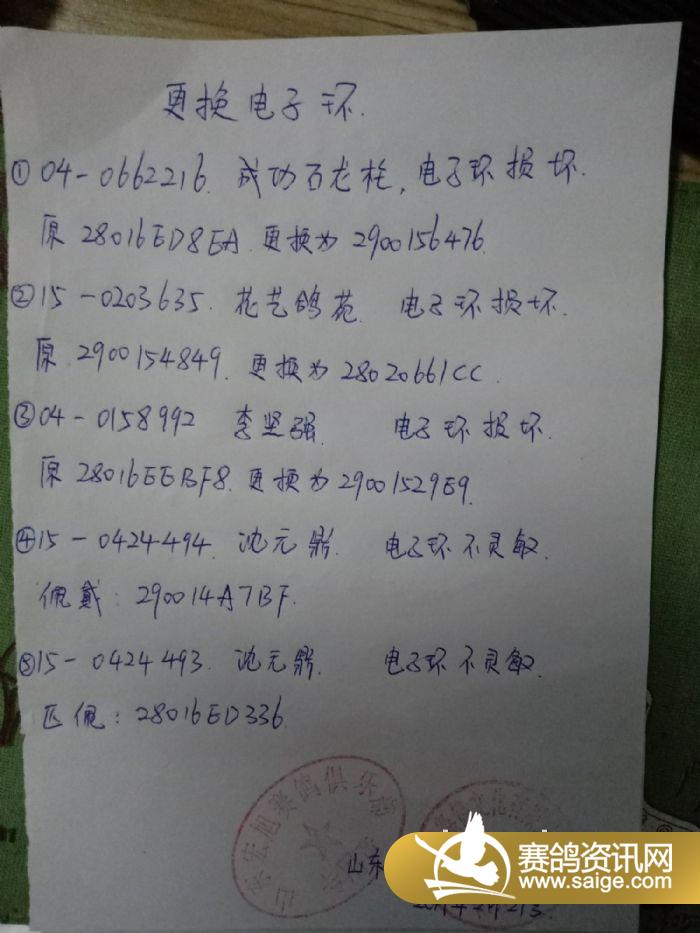 更换电子环.
①04-0662216. 成功石龙柱, 电子环损坏.
原 28016ED8EA. 更换为 2900156476.
②15-0203635. 花艺鸽苑. 电子环损坏.
原. 2900154849. 更换为 28020661CC.
③04-0158992 李坚强. 电子环损坏.
原 28016EEBF8. 更换为 29001529E9.
④15-0424494. 沈元鼎. 电子环不灵敏.
佩戴: 290014A7BF.
⑤15-0424493. 沈元鼎. 电子环不灵敏.
匹佩: 28016ED336.
山东宏旭赛鸽俱乐部
山东
赛鸽资讯网
www.saige.com